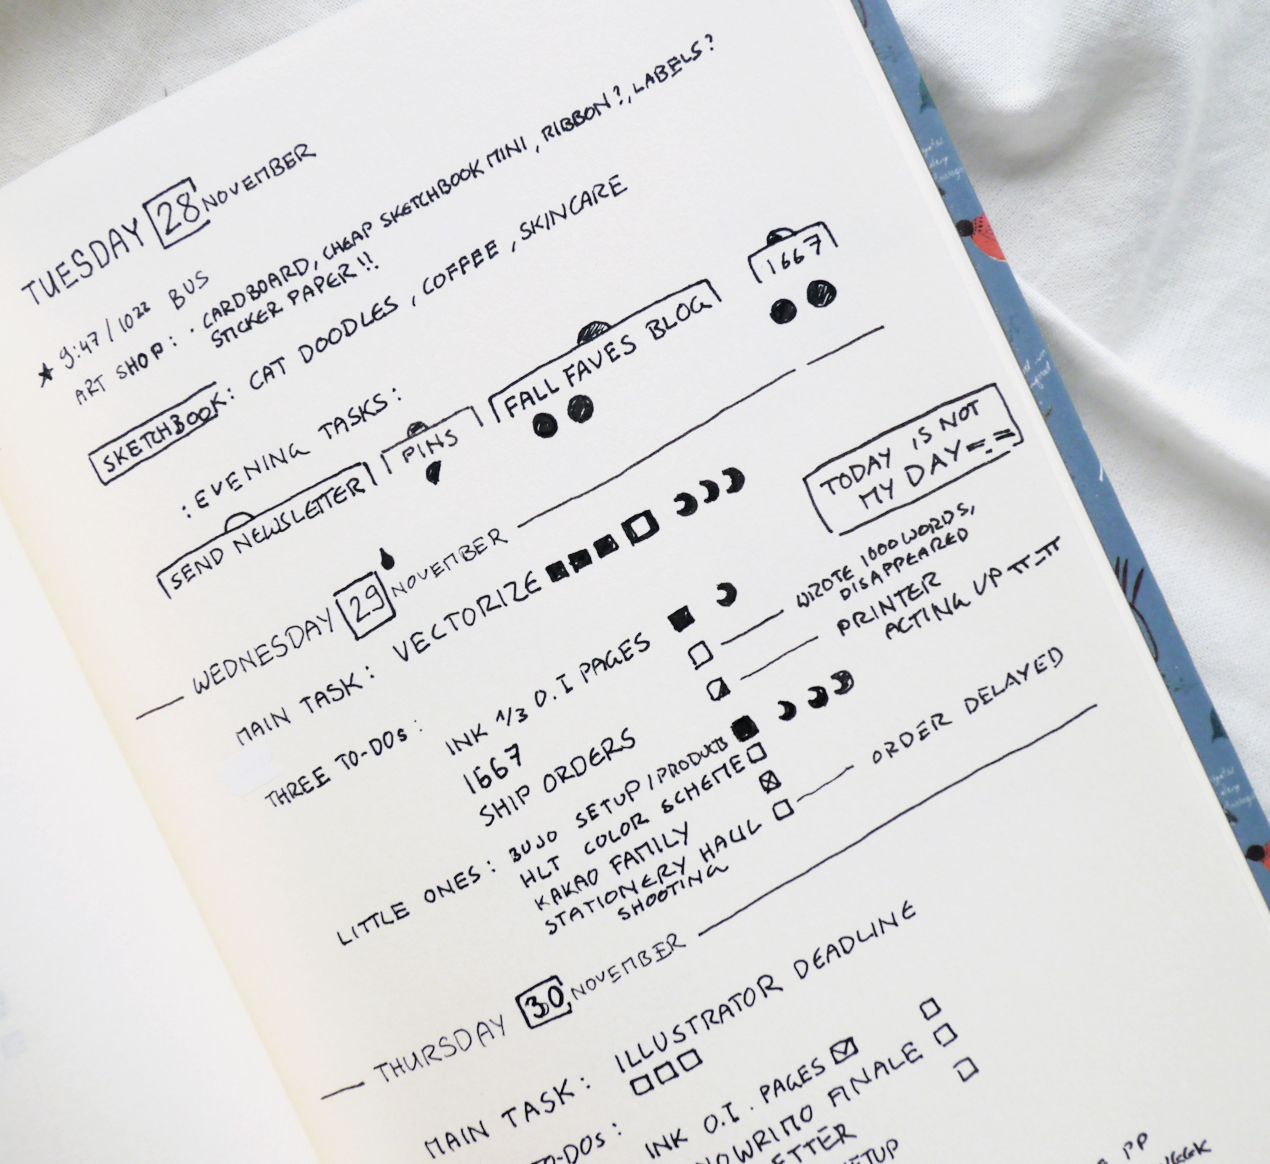 TUESDAY 28 NOVEMBER
★ 9:47 / 10²² BUS
ART SHOP: · CARDBOARD, CHEAP SKETCHBOOK MINI, RIBBON?, LABELS?
STICKER PAPER!!
SKETCHBOOK: CAT DOODLES, COFFEE, SKINCARE
: EVENING TASKS:
SEND NEWSLETTER PINS FALL FAVES BLOG 1667
WEDNESDAY 29 NOVEMBER
TODAY IS NOT
MY DAY =.=
MAIN TASK: VECTORIZE
THREE TO-DOs: INK 1/3 O.I PAGES
1667 WROTE 1000 WORDS,
DISAPPEARED
SHIP ORDERS PRINTER
ACTING UP π_π
LITTLE ONES: BUJO SETUP / PRODUCTS
HLT COLOR SCHEME
KAKAO FAMILY
STATIONERY HAUL ORDER DELAYED
SHOOTING
THURSDAY 30 NOVEMBER
MAIN TASK: ILLUSTRATOR DEADLINE
TO-DOs: INK O.I. PAGES
NOWRIMO FINALE
ETTER
SETUP
PP